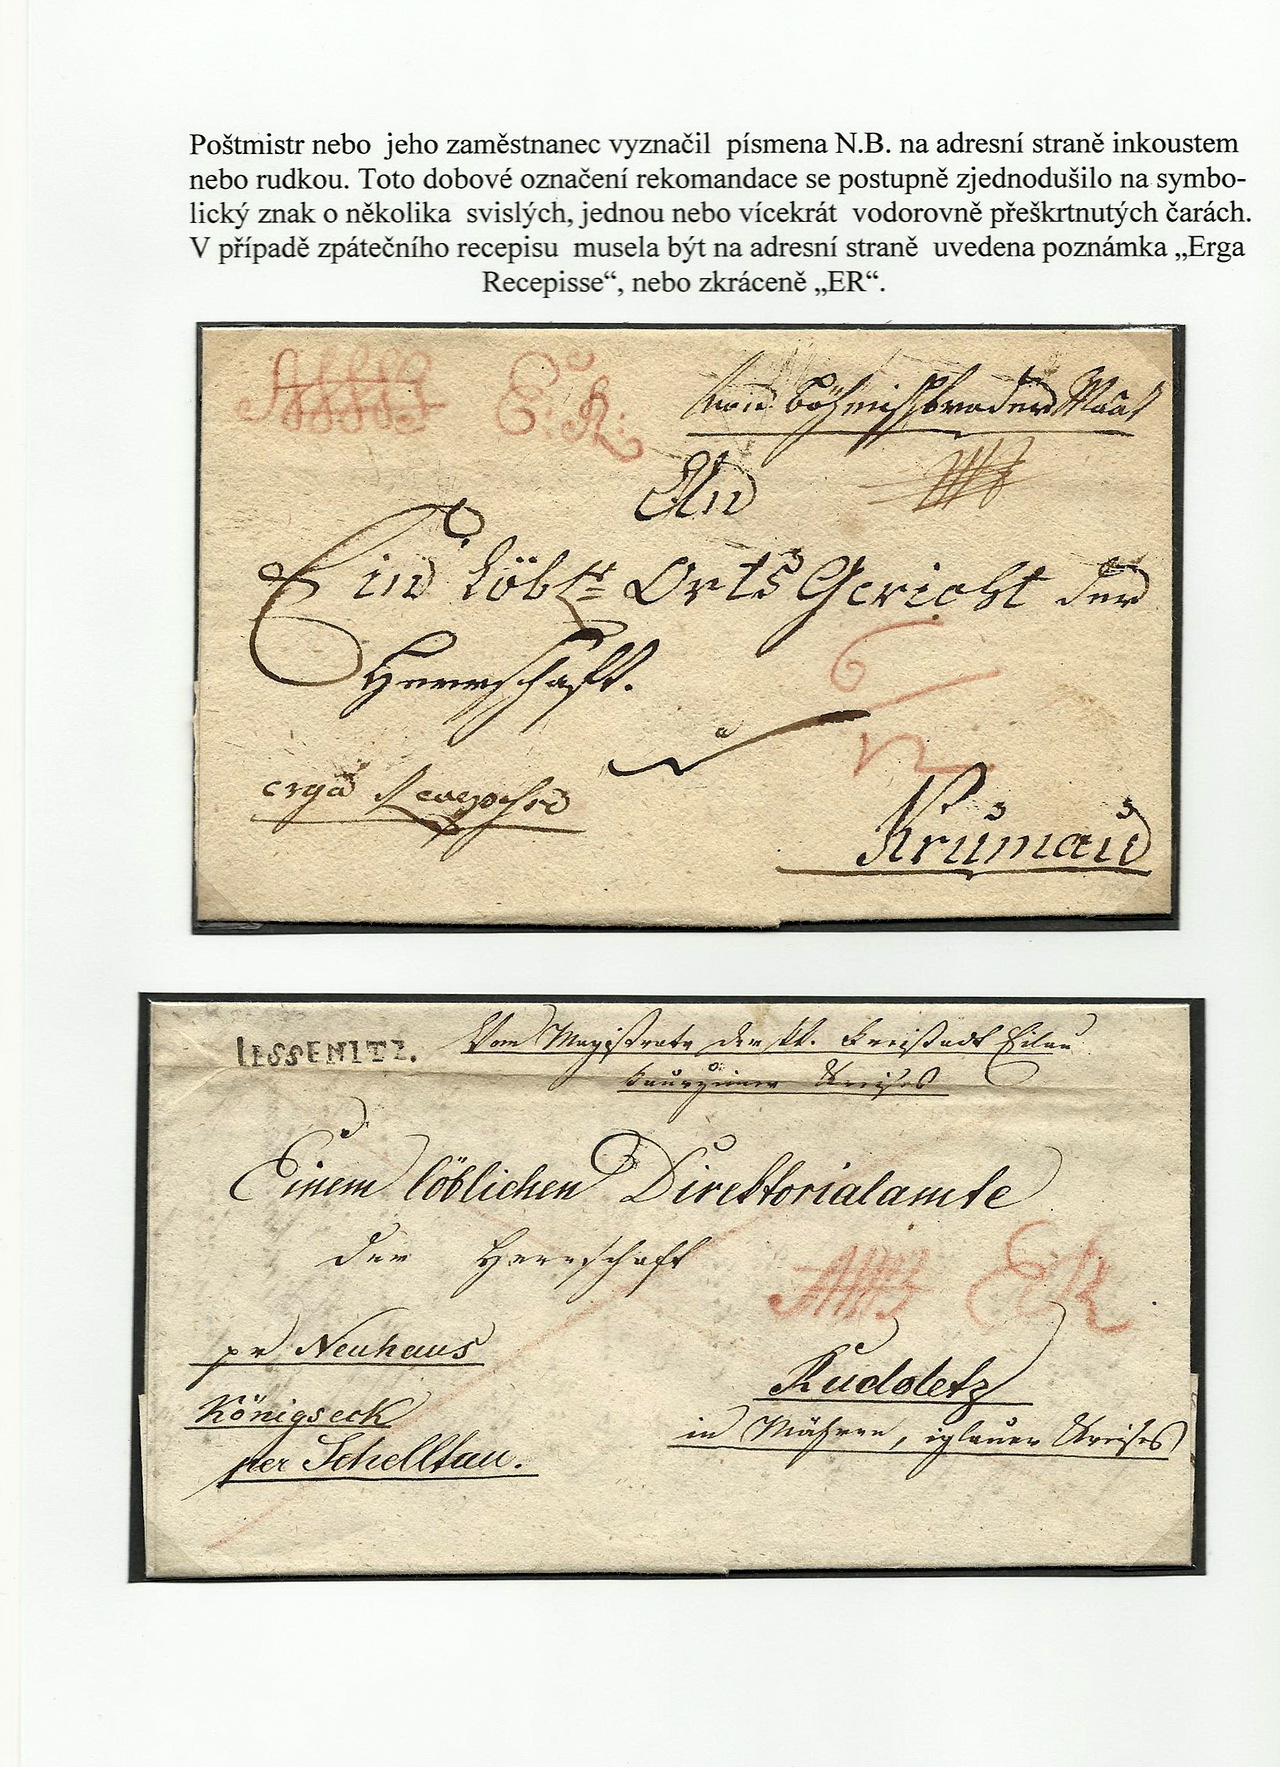 Poštmistr nebo jeho zaměstnanec vyznačil písmena N.B. na adresní straně inkoustem
nebo rudkou. Toto dobové označení rekomandace se postupně zjednodušilo na symbo-
lický znak o několika svislých, jednou nebo vícekrát vodorovně přeškrtnutých čarách.
V případě zpátečního recepisu musela být na adresní straně uvedena poznámka „Erga
Recepisse“, nebo zkráceně „ER“.
E: R:
von
An
Ein löbl. Orts Gericht der
Herrschaft.
zu
erga
Krumau
IESSENITZ.
Vom Magistrate der Freistadt Eilau
Kaurzimer Kreises
Einem löblichen Direktorialamte
der Herrschaft
ER
pr Neuhaus
Königseck
per Schelltau.
Rudoletz
in Mähren, iglauer Kreises